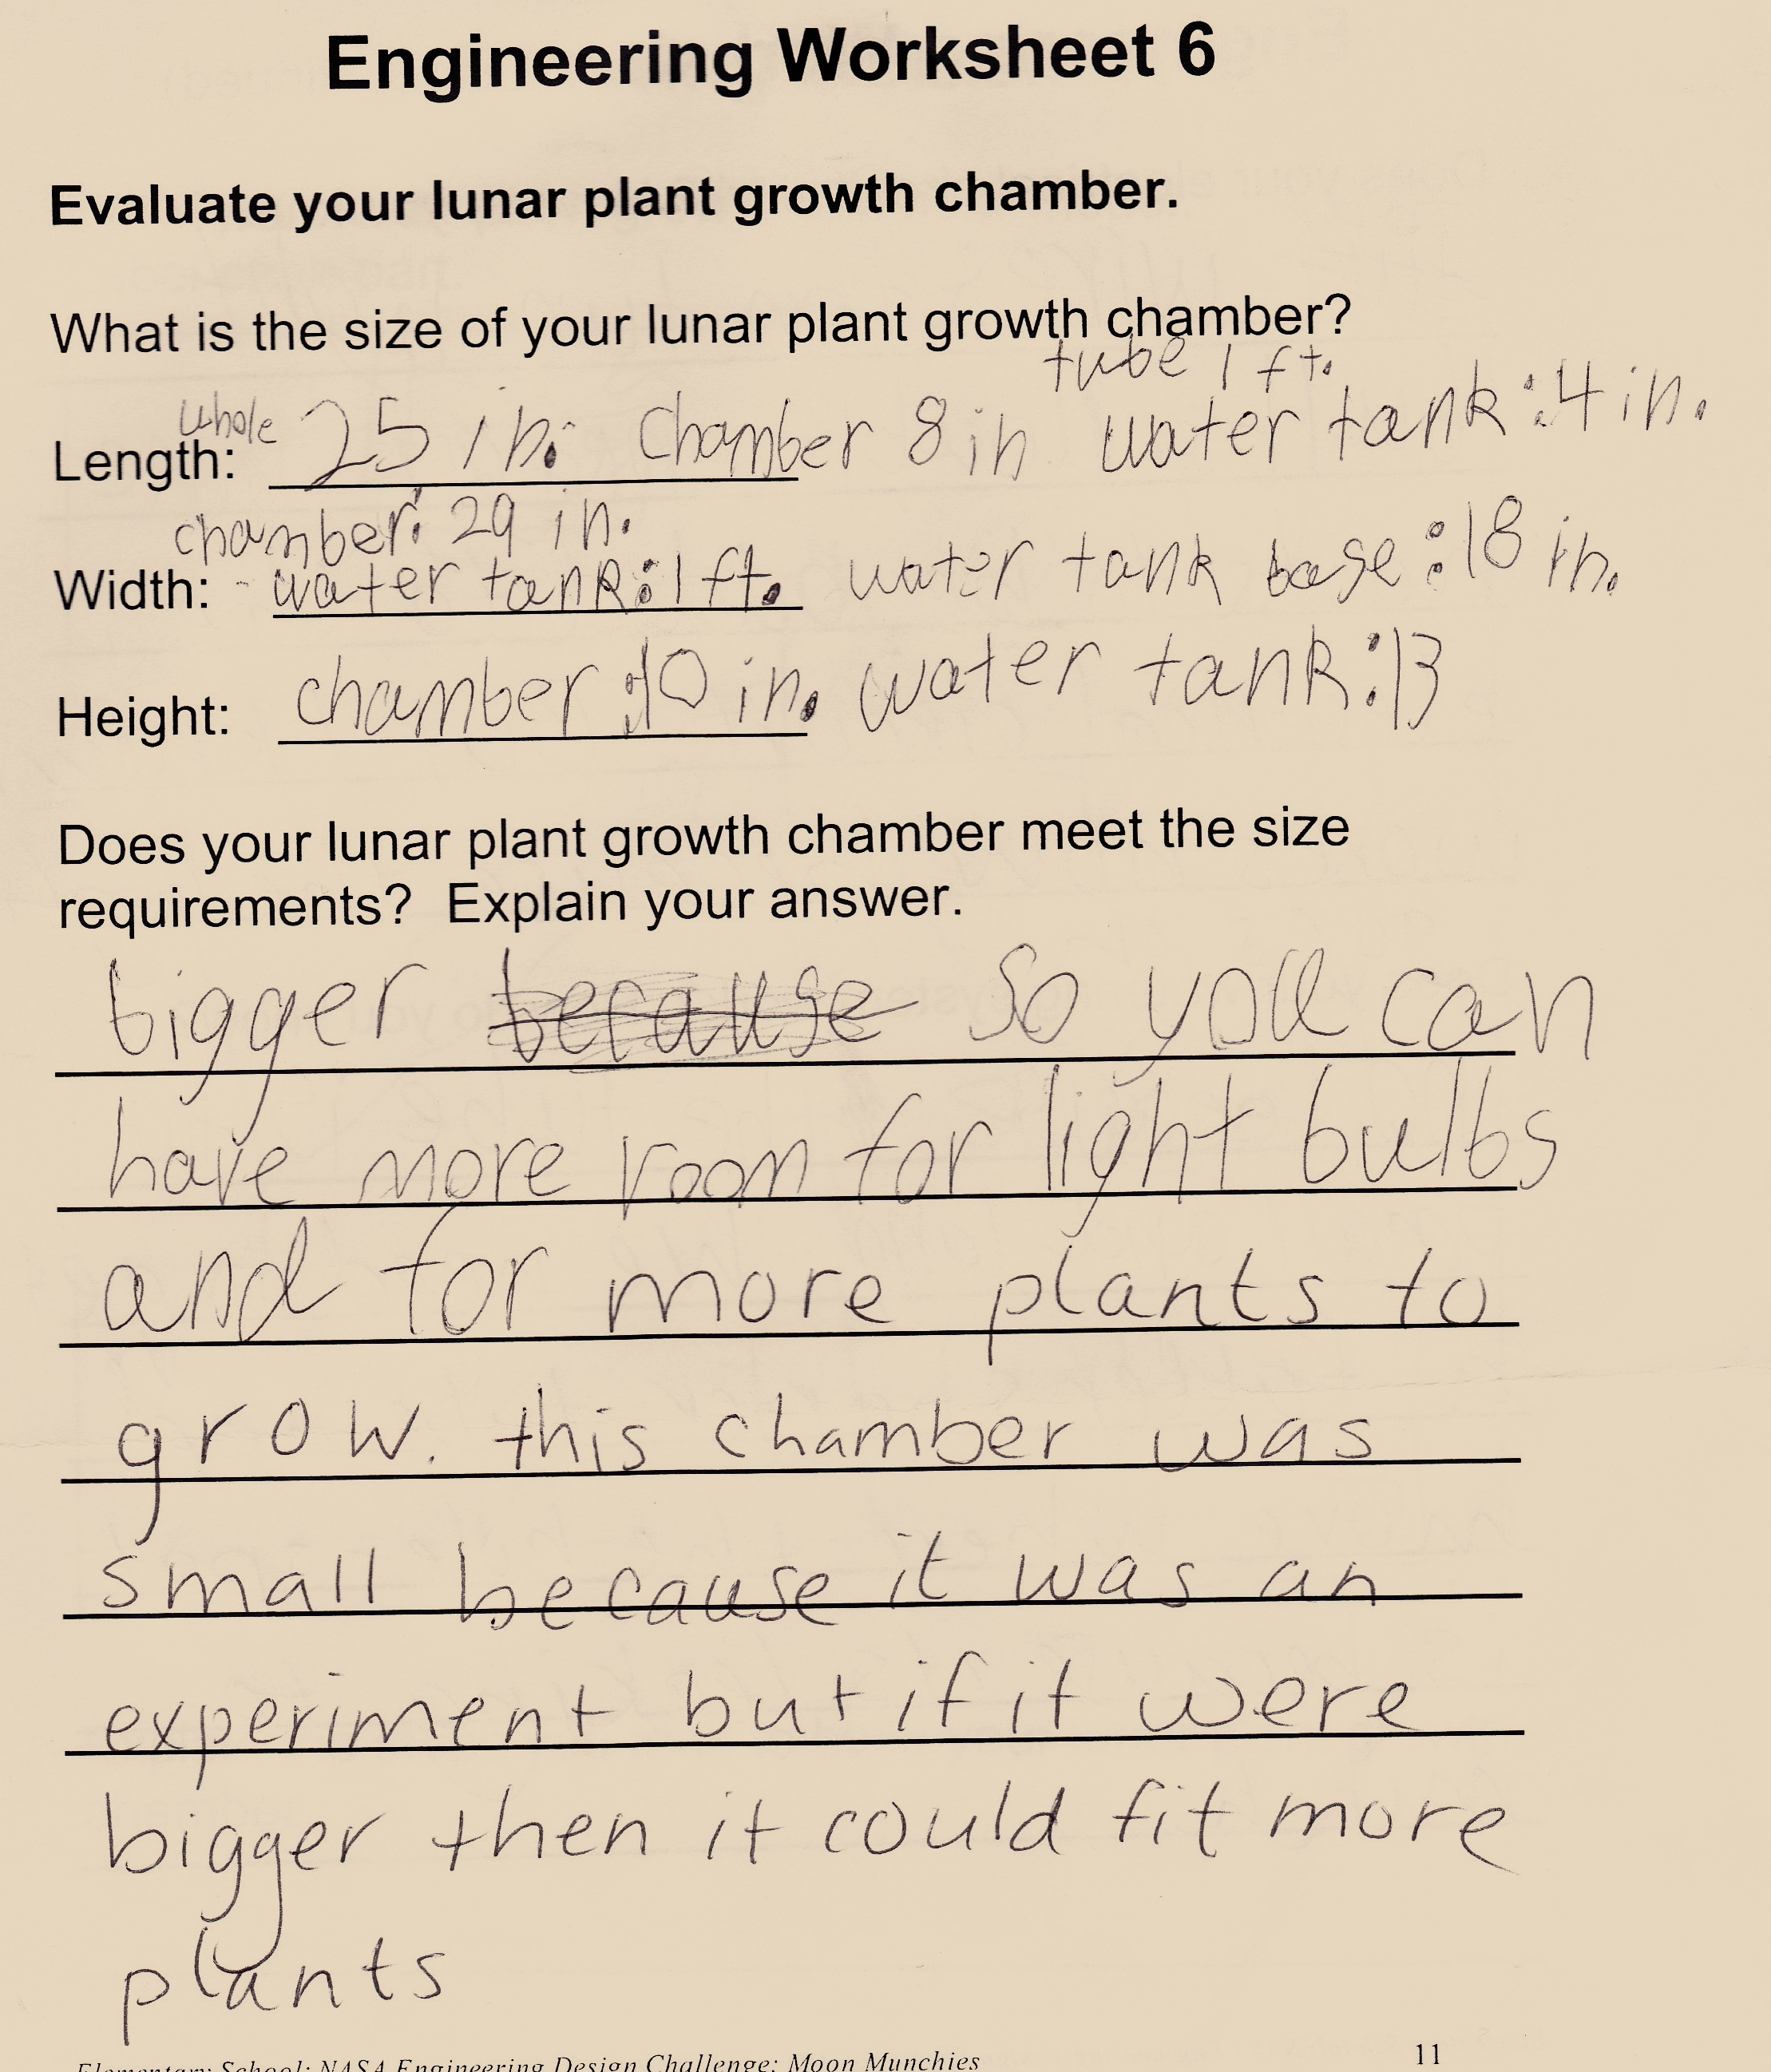 Engineering Worksheet 6
Evaluate your lunar plant growth chamber.
What is the size of your lunar plant growth chamber?
tube 1 ft.
Length: whole 25 in. Chamber 8 in water tank: 4 in.
chamber: 29 in.
Width: water tank: 1 ft. water tank base: 18 in.
Height: chamber: 10 in. water tank: 13
Does your lunar plant growth chamber meet the size
requirements? Explain your answer.
bigger because so you can
have more room for light bulbs
and for more plants to
grow. this chamber was
small because it was an
experiment but if it were
bigger then it could fit more
plants
Elementary School: NASA Engineering Design Challenge: Moon Munchies 11